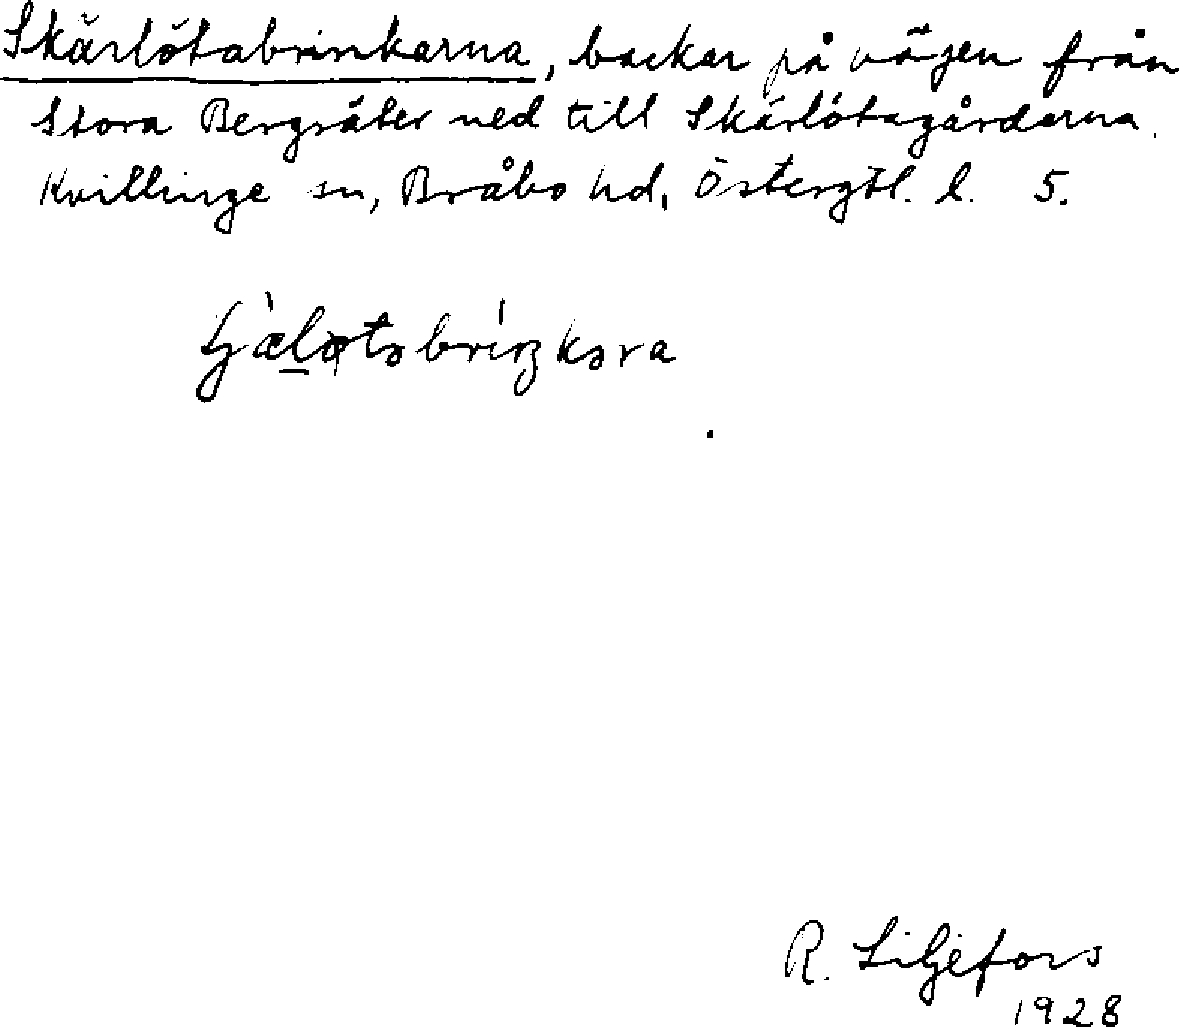 Skärlötabrinkarna, backar på vägen från
Stora Bergsäter ned till Skärlötagårdarna.
Kvillinge sn, Bråbo hd, Östergötl. l. 5.
R. Liljefors
1928